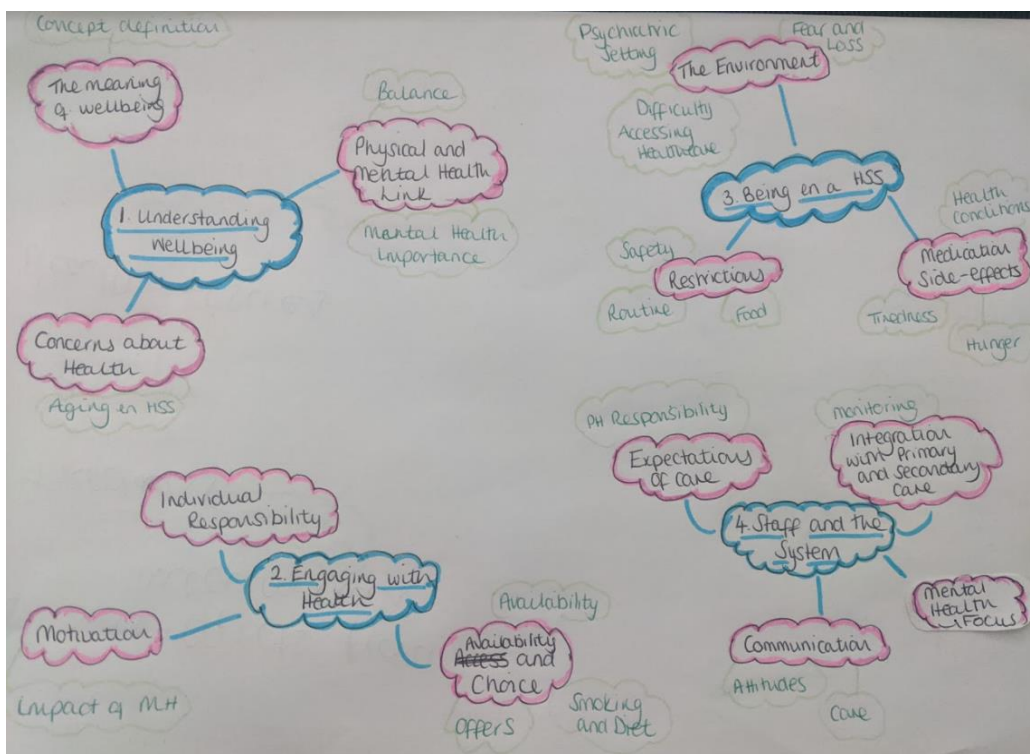 Concept definition
The meaning
of wellbeing
Balance
Physical and
Mental Health
Link
Mental Health
Importance
1. Understanding
Wellbeing
Concerns about
Health
Aging in HSS
Psychiatric
Setting
Fear and
Loss
The Environment
Difficulty
Accessing
Healthcare
3. Being in a HSS
Health
Conditions
Medication
Side-effects
Tiredness
Hunger
Safety
Restrictions
Routine
Food
Individual
Responsibility
2. Engaging with
Health
Motivation
Impact of MH
Availability
Availability
Access and
Choice
Offers
Smoking
and Diet
PH Responsibility
Expectations
of care
Monitoring
Integration
with Primary
and Secondary
Care
4. Staff and the
System
Mental
Health
Focus
Communication
Attitudes
Care